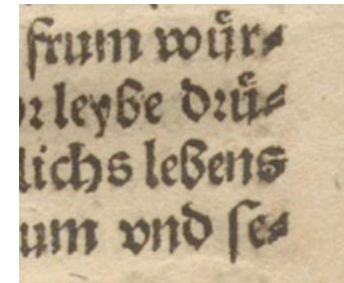 frum wuͤr⸗
leybe druͤ⸗
lichs lebens
um vnd ſe⸗